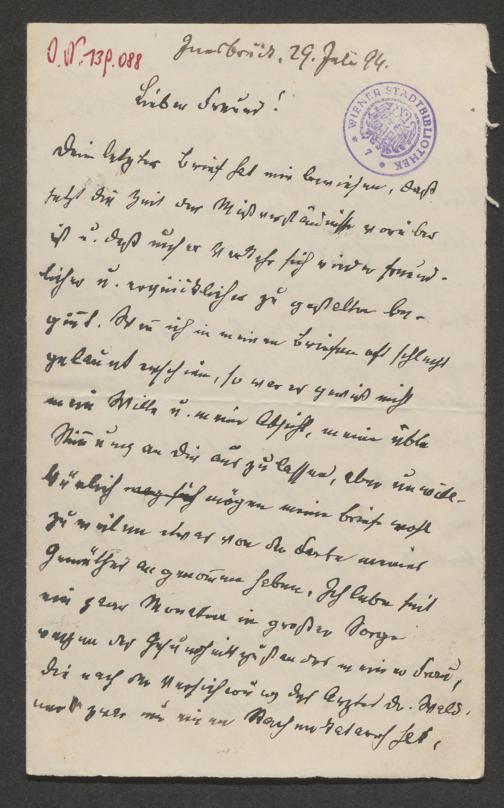 I.N. 13p.088
Innsbruck, 29. Juli 94.
WIENER STADTBIBLIOTHEK
* 7 *
Lieber Freund!
Dein letzter Brief hat mir bewiesen, daß
jetzt die Zeit der Mißverständnisse vorüber
ist u. daß unser Verkehr sich wieder freund-
licher u. erquicklicher zu gestalten be-
ginnt. Wenn ich in meinen Briefen oft schlecht
gelaunt erschien, so war es gewiß nicht
mein Wille u. meine Absicht, meine üble
Stimmung an Dir auszulassen, aber unwill-
kürlich mögen meine Briefe wohl
zuweilen etwas von der Farbe meines
Gemüthes angenommen haben. Ich lebe seit
ein paar Monaten in großer Sorge
wegen des Gesundheitszustandes meiner Frau,
die nach der Versicherung des Arztes Dr.
zwar nur einen Rachenkatarrh hat,